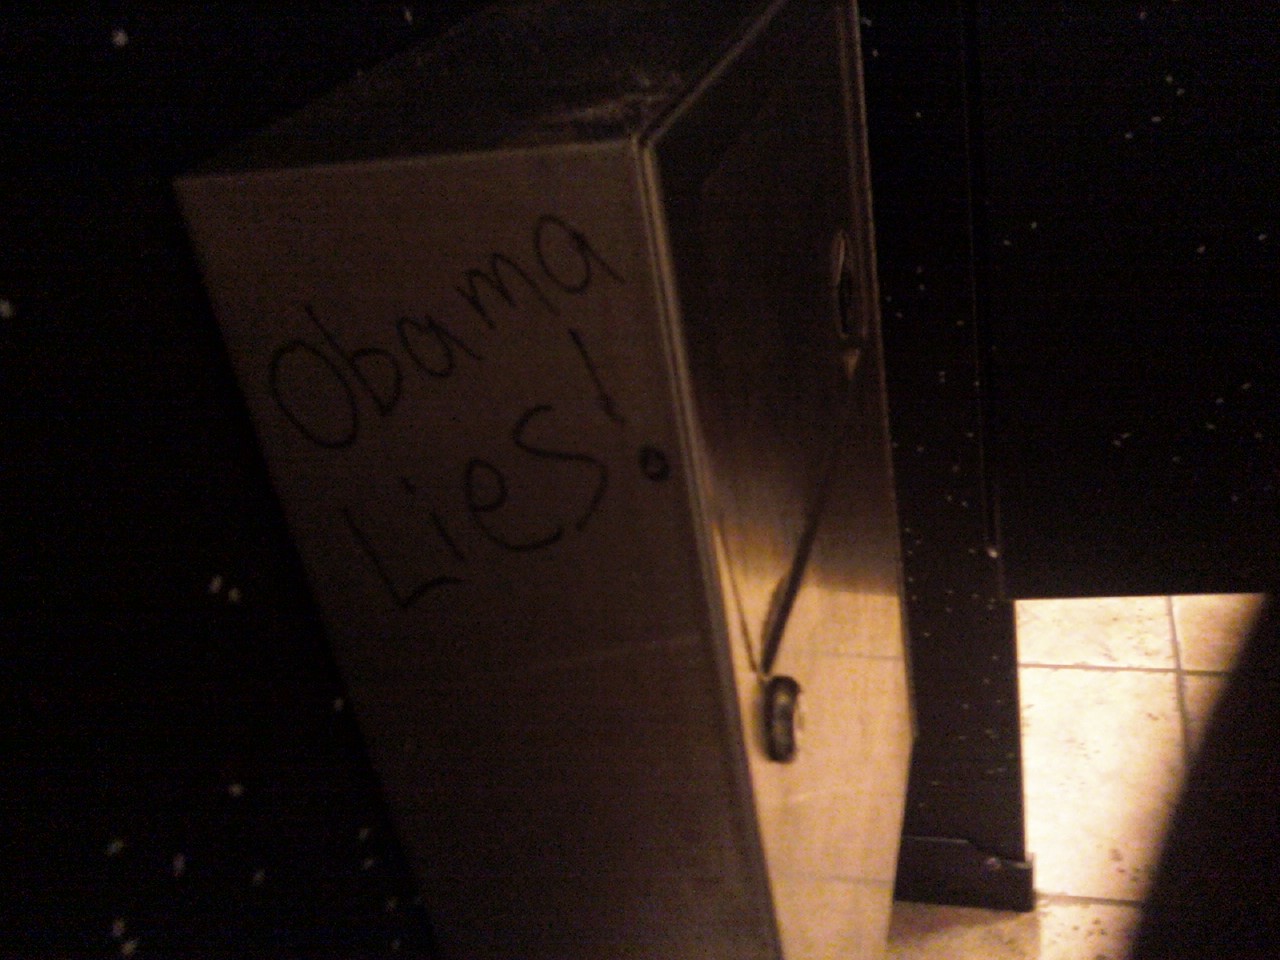 Obama
Lies!